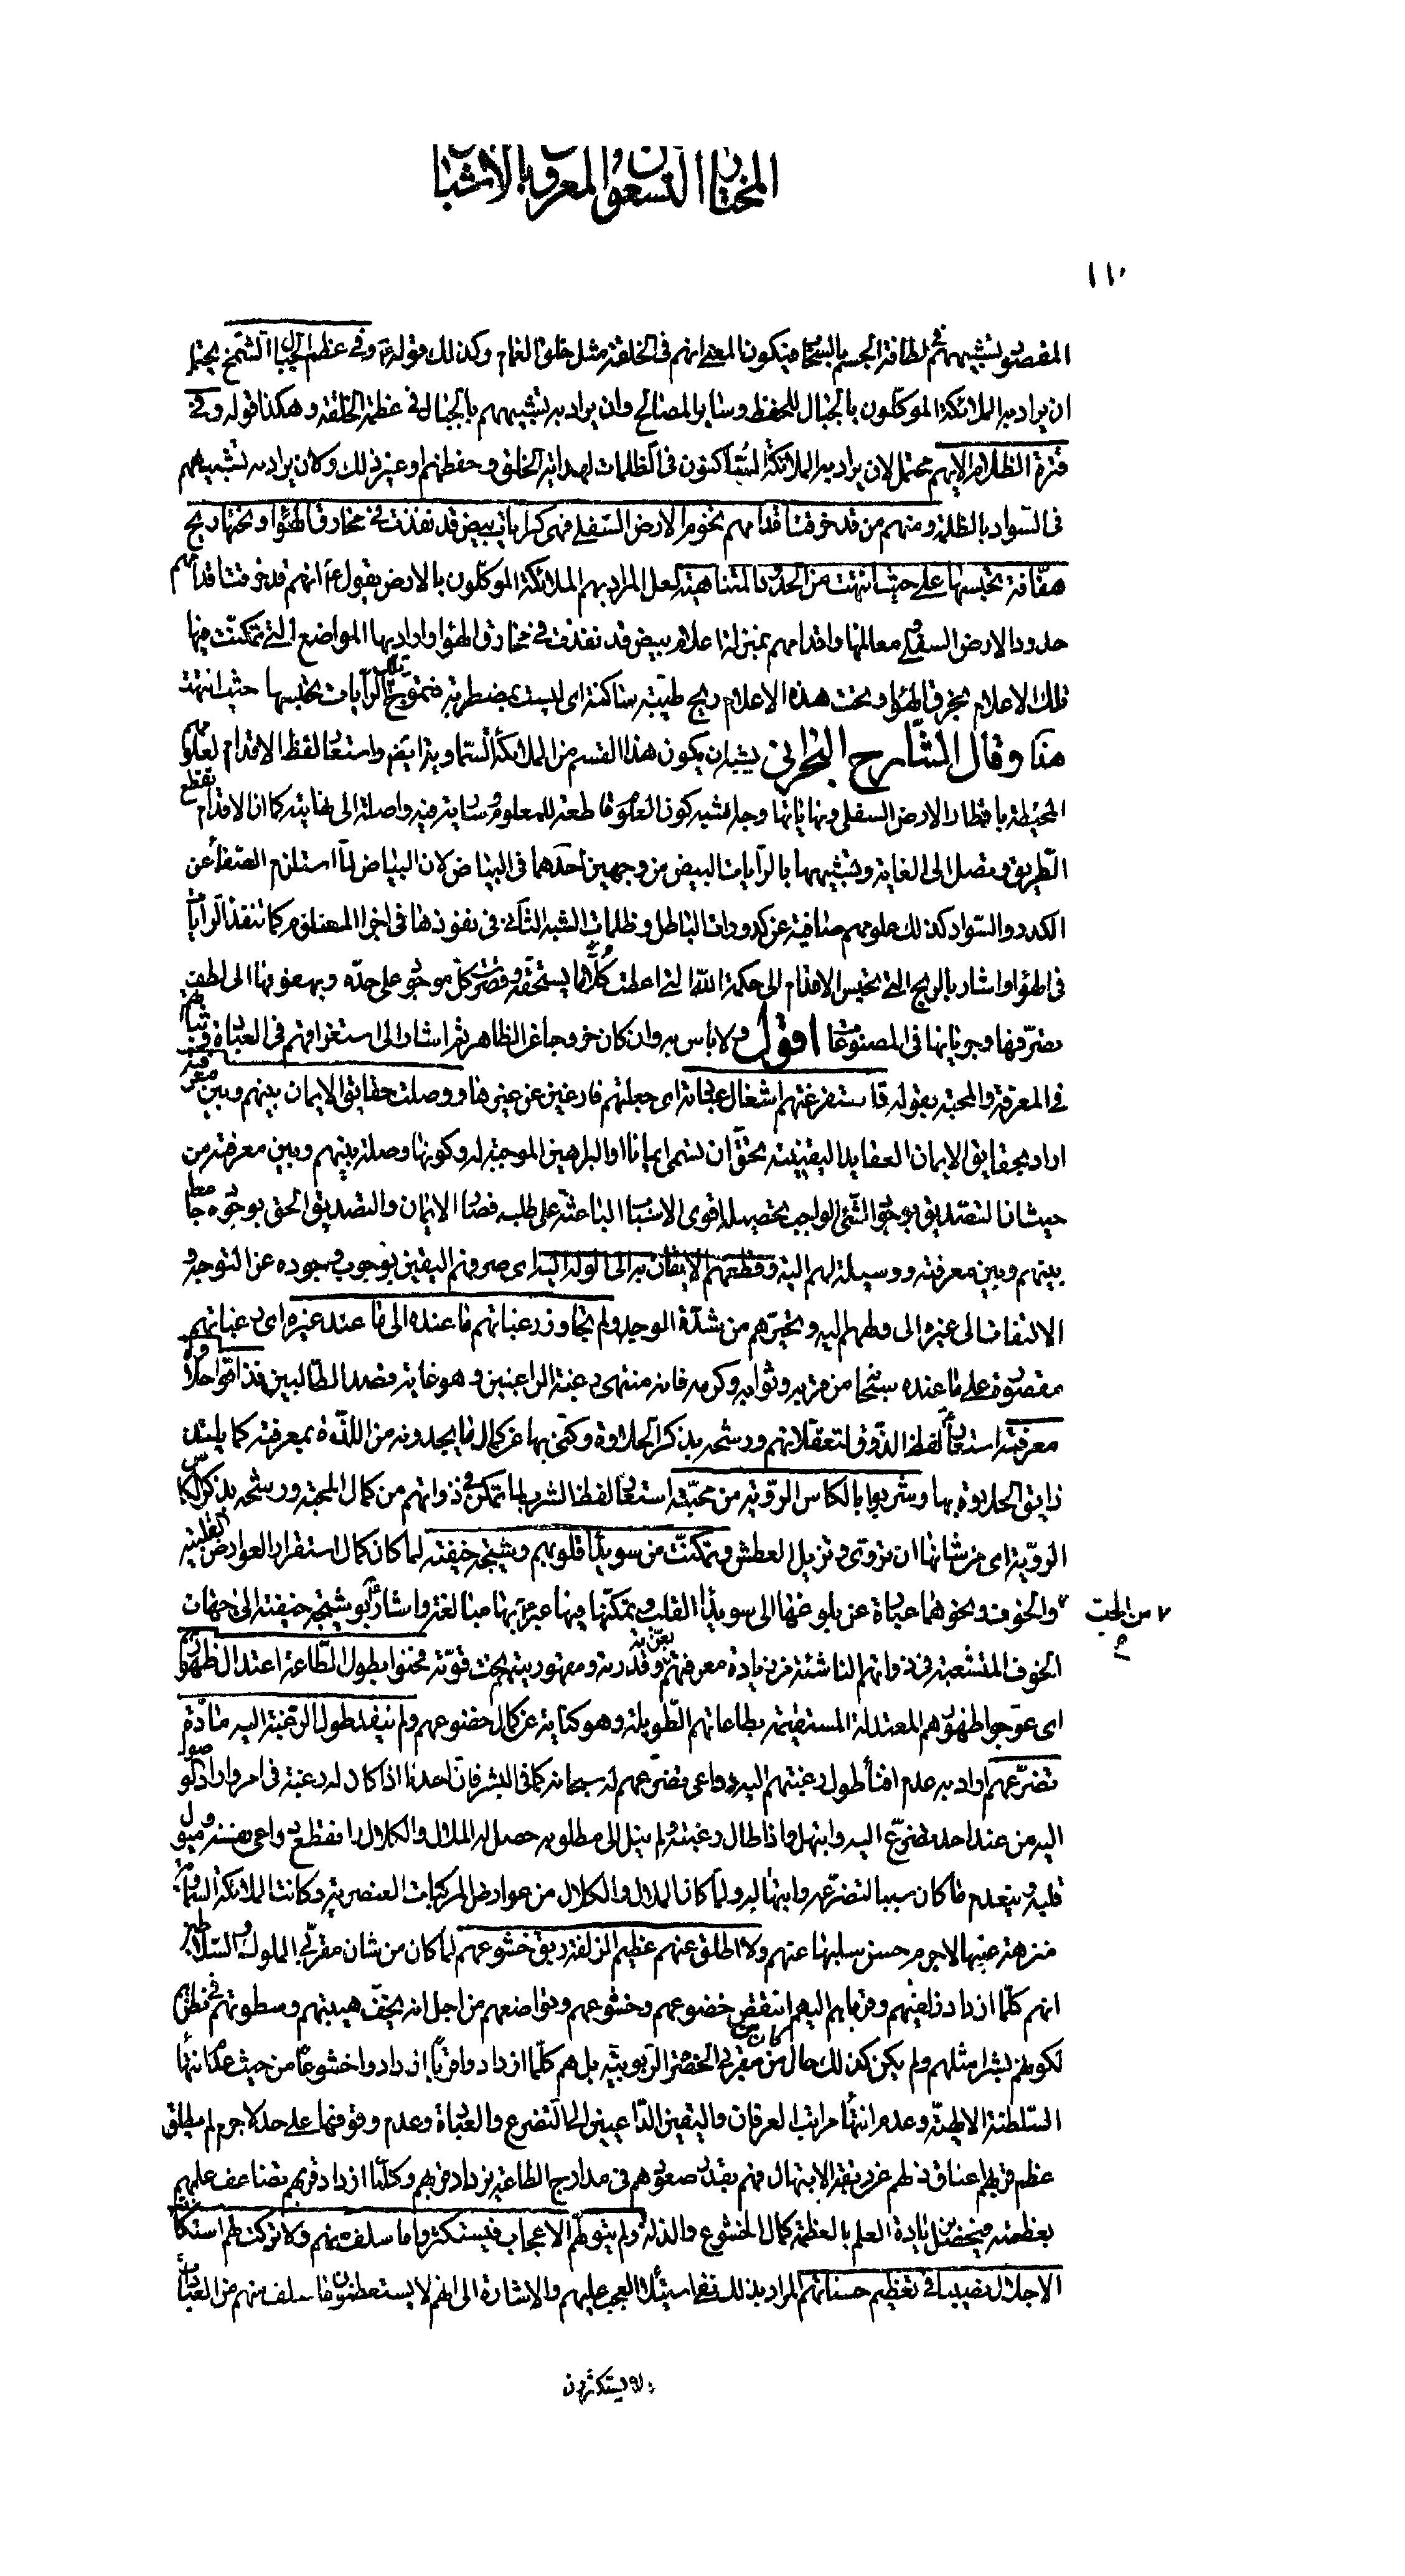 المختار التسعون المعروف بالاشباح
١١٠
المقصود تشبيههم في لطافة الجسم بالسحاب فيكون المعنى انهم في الخلقة مثل خلق الغمام وكذلك قوله وفي عظم الجبال الشمخ يحتمل
ان يراد به الملائكة الموكلون بالجبال للحفظ وساير المصالح وان يراد به تشبيههم بالجبال في عظمة الخلقة وهكذا قوله وفي
قترة الظلام الايهم محتمل لان يراد به الملائكة الساكنون في الظلمات لهداية الخلق وحفظهم او غير ذلك وكان يراد به تشبيههم
في السواد بالظلمة ومنهم من قد خرقت اقدامهم تخوم الارض السفلى فهي كرايات بيض قد نفذت في مخارق الهواء وتحتها ريح
هفافة تحبسها على حيث انتهت من الحدود المتناهية لعل المراد بهم الملائكة الموكلون بالارض يقول انهم قد خرقت اقدامهم
حدود الارض السفلى ومعالمها واقدامهم بمنزلة اعلام بيض قد نفذت في مخارق الهواء واراد بها المواضع التي تمكنت فيها
تلك الاعلام بخرق الهواء وتحت هذه الاعلام ريح طيبة ساكنة اى ليست بمضطربة فتموج تلك الرايات تحبسها حيث انتهت
هنا وقال الشارح البحراني يشبه ان يكون هذا القسم من الملائكة السماوية ايض واستعار لفظ الاقدام لعلومهم
المحيطة باقطار الارض السفلى ونهاياتها وجه المشابهة كون العلوم قاطعة للمعلوم وسارية فيه واصلة الى نهايته كما ان الاقدام تقطع
الطريق وتصل الى الغاية وتشبيهها بالرايات البيض من وجهين احدهما في البياض لان البياض لما استلزم الصفاء عن
الكدر والسواد كذلك علومهم صافية عن كدورات الباطل وظلمات الشبه الثاني في نفوذها في اجزاء المعلوم كما تنفذ الرايات
في الهواء واشار بالريح التي تحبس الاقدام الى حكمة الله التي اعطت كلا ما يستحقه وقصرت كل موجود على حده وبهفوفها الى لطف
تصرفها وجريانها في المصنوعات اقول ولا باس به وان كان خروجا عن الظاهر ثم اشار الى استغراقهم في العبادة وثباتهم
في المعرفة والمحبة بقوله قد استفرغتهم اشغال عبادته اى جعلتهم فارغين عن غيرها ووصلت حقايق الايمان بينهم وبين معرفته
اراد بحقايق الايمان العقايد اليقينية تحق ان تسمى ايمانا او البراهين الموجبة له وكونها وصلة بينهم وبين معرفته من
حيث ان التصديق بوجود الشئ الواجب تحصيله اقوى الاسباب الباعثة على طلبه فصار الايمان والتصديق الحق بوجوده جامعا
بينهم وبين معرفته ووسيلة لهم اليه وقطعهم الايقان به الى الوله اليه اى صرفهم اليقين بوجوب وجوده عن التوجه و
الالتفات الى غيره الى ولههم اليه وتحيرهم من شدة الوجد ولم تجاوز رغباتهم ما عنده الى ما عند غيره اى رغباتهم
مقصورة على ما عنده سبحانه من قربه وثوابه وكرمه فانه منتهى رغبة الراغبين وهو غاية قصد الطالبين قد ذاقوا حلاوة
معرفته استعار لفظ الذوق لتعقلاتهم ورشحه بذكر الحلاوة وكنى بها عن كمال ما يجدونه من اللذة بمعرفته كما يلتذ
ذايق الحلاوة بها وشربوا بالكاس الروية من محبته استعار لفظ الشرب لما تمكن في ذواتهم من كمال المحبة ورشحه بذكر الكاس
الروية اى من شانها ان تروى وتزيل العطش وتمكنت من سويداء قلوبهم وشيجة خيفته لما كان كمال استقرار العوارض القلبية
من الحب والخوف ونحوهما عبارة عن بلوغها الى سويداء القلب وتمكنها فيها عبر بها مبالغة واشار بوشيجة خيفته الى جهات
الخوف المتشعبة في ذواتهم الناشئة من زيادة معرفتهم بعزته وقدرته ومقهوريتهم تحت قوته فحنوا بطول الطاعة اعتدال ظهورهم
اى عوجوا ظهورهم المعتدلة المستقيمة بطاعاتهم الطويلة وهو كناية عن كمال خضوعهم ولم ينفد طول الرغبة اليه مادة
تضرعهم اراد به عدم افناء طول رغبتهم اليه دواعى تضرعهم له سبحانه كما في البشر فان احدنا اذا كان له رغبة في امر واراد الوصول
اليه من عند احد تضرع اليه وابتهل واذا طال رغبته ولم ينل الى مطلوبه حصل له الملال والكلال انقطع دواعى نفسه وميول
قلبه وينعدم ما كان سببا لتضرعه وابتهاله ولما كان الملال والكلال من عوارض المركبات العنصرية وكانت الملائكة السماوية
منزهة عنها لاجرم حسن سلبها عنهم ولا اطلق عنهم عظيم الزلفة ربق خشوعهم لما كان من شان مقربي الملوك والسلاطين
انهم كلما ازداد زلفيهم وقربهم اليهم انتقص خضوعهم وخشوعهم وتواضعهم من اجل انه يخف هيبتهم وسطوتهم في نظرهم
لكونهم بشرا مثلهم ولم يكن كذلك حال من كان من مقربي الحضرة الربوبية بل هم كلما ازدادوا قربا ازدادوا خشوعا من حيث عدم انتهاء
السلطنة الالهية وعدم انتهاء مراتب العرفان واليقين الداعيين الى التضرع والعبادة وعدم وقوفها على حد لاجرم لم يطلق
عظم قربهم اعناق ذلهم عن ربقة الابتهال فهم بقدر صعودهم في مدارج الطاعة يزداد قربهم وكلما ازداد قربهم تضاعف علمهم
بعظمته فيحصل من زيادة العلم بالعظمة كمال الخشوع والذلة ولم يتولهم الاعجاب فيستكثروا ما سلف منهم ولا تركت لهم استكانة
الاجلال نصيبا في تعظيم حسناتهم المراد بذلك نفي استيلاء العجب عليهم والاشارة الى انهم لا يستعظمون ما سلف منهم من العبادات
ولا يستكثرون